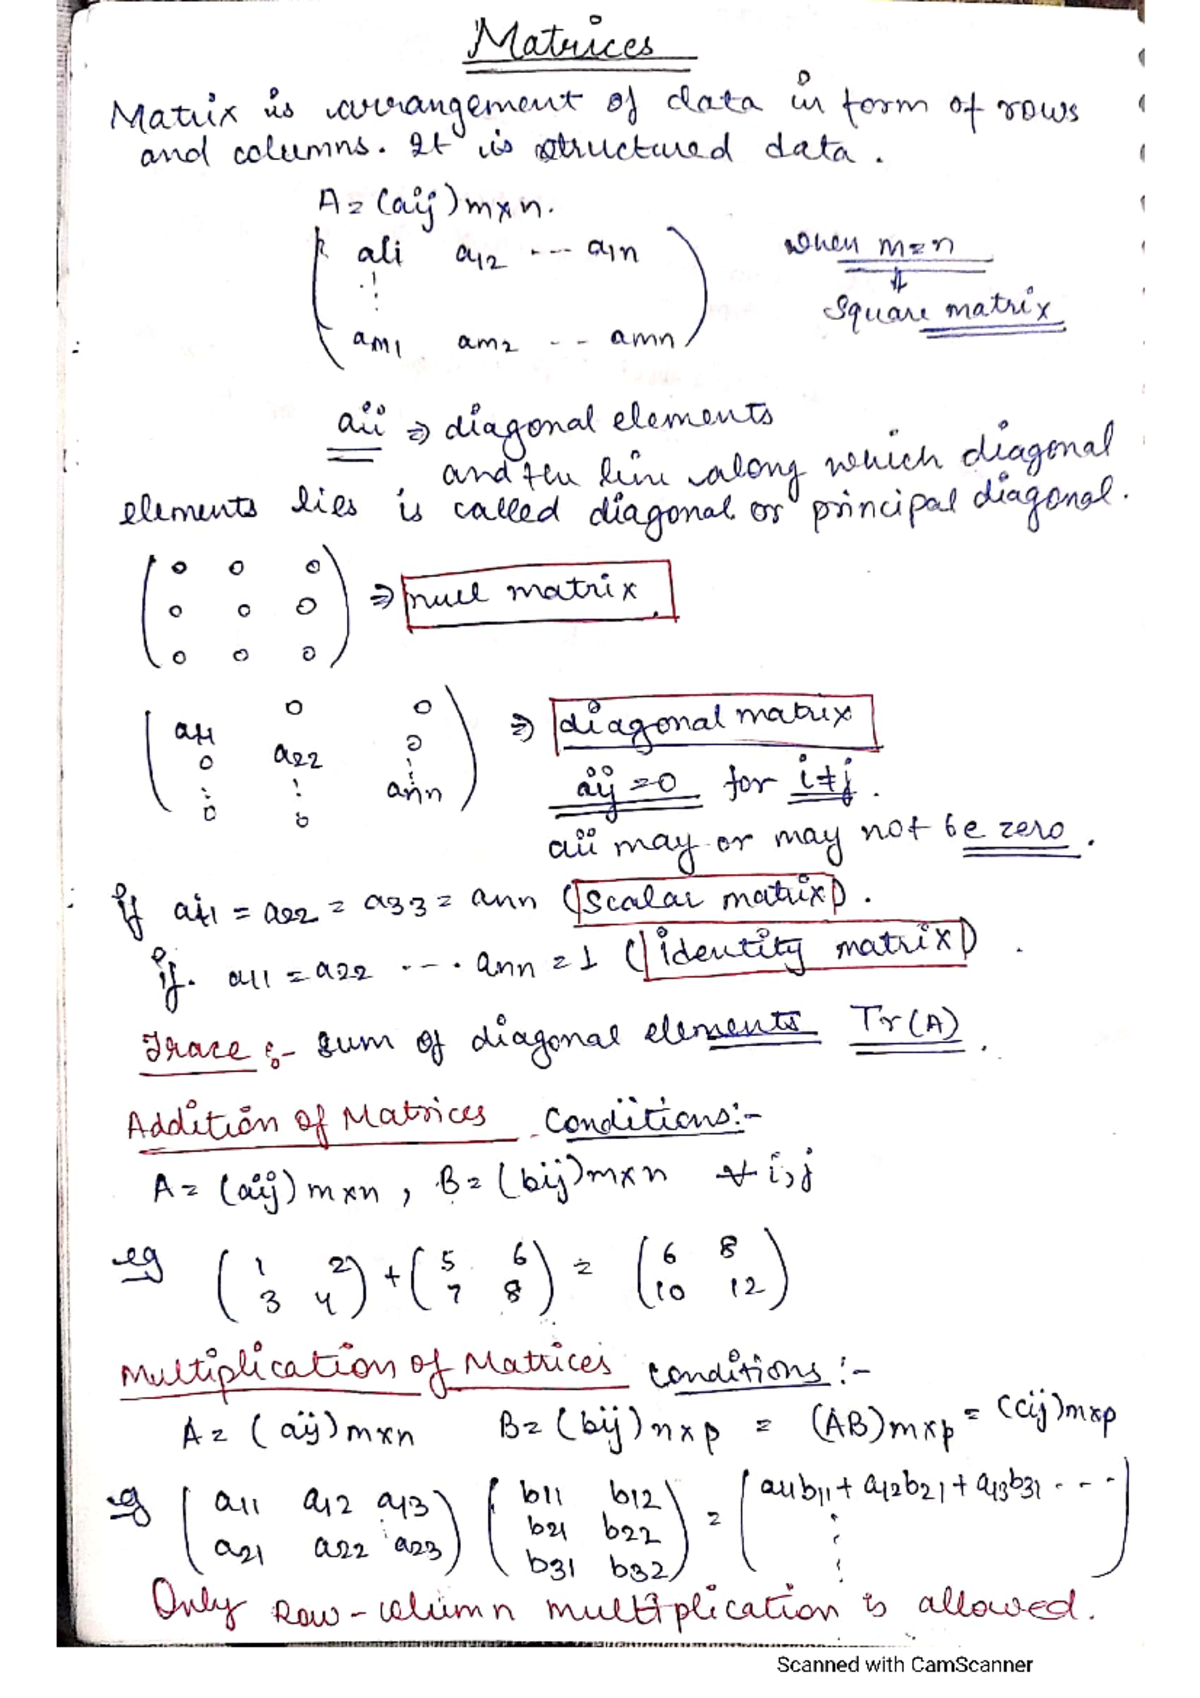 Matrices
Matrix is arrangement of data in form of rows
and columns. It is structured data.
A = (aij)m×n.
a11 a12 --- a1n
when m=n
⇓
Square matrix
am1 am2 -- amn
aii ⇒ diagonal elements
and the line along which diagonal
elements lies is called diagonal or principal diagonal.
0 0 0
0 0 0 ⇒ null matrix
0 0 0
a11 0 0 ⇒ diagonal matrix
0 a22 0
⋮ ⋮ ⋮ ann
0 0
aij = 0 for i≠j.
aii may or may not be zero.
if a11 = a22 = a33 = ann (scalar matrix).
if. a11 = a22 ---. ann = 1 (identity matrix).
Trace :- sum of diagonal elements Tr(A).
Addition of Matrices Conditions:-
A = (aij)m×n, B = (bij)m×n ∀ i,j
eg (1 2 + (5 6 = (6 8
3 4) 7 8) 10 12)
Multiplication of Matrices conditions:-
A = (aij)m×n B = (bij)n×p = (AB)m×p = (cij)m×p
eg (a11 a12 a13 (b11 b12 = (a11b11 + a12b21 + a13b31 ---
a21 a22 a23) b21 b22
b31 b32)
Only Row-column multiplication is allowed.
Scanned with CamScanner